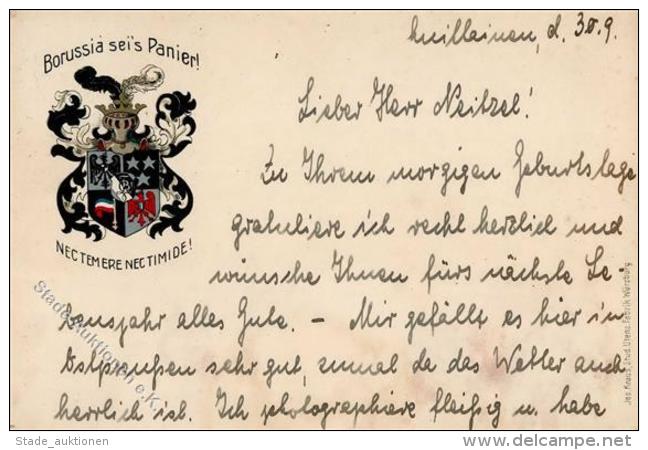 Borussia sei's Panier!
NEC TEMERE NEC TIMIDE!
d. 30.9.
Lieber Herr Neitzel!
Zu Ihrem morgigen Geburtstage
gratuliere ich recht herzlich und
wünsche Ihnen fürs nächste Le
bensjahr alles Gute. – Mir gefällt es hier in
Ostpreußen sehr gut, zumal da das Wetter auch
herrlich ist. Ich photographiere fleißig u. habe
Jos. Kraus, Stud. Utens. Fabrik Würzburg
Stade Auktionen e.K.
Stade_auktionen
www.delcampe.net